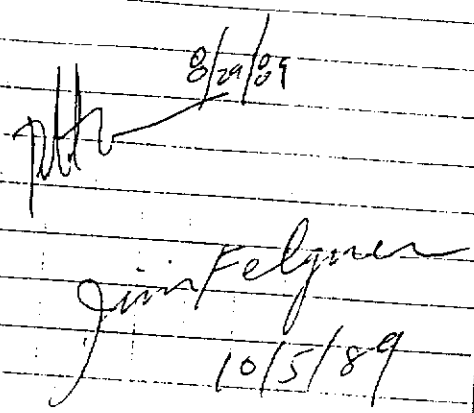 8/29/89
Jim Felgner
10/5/89